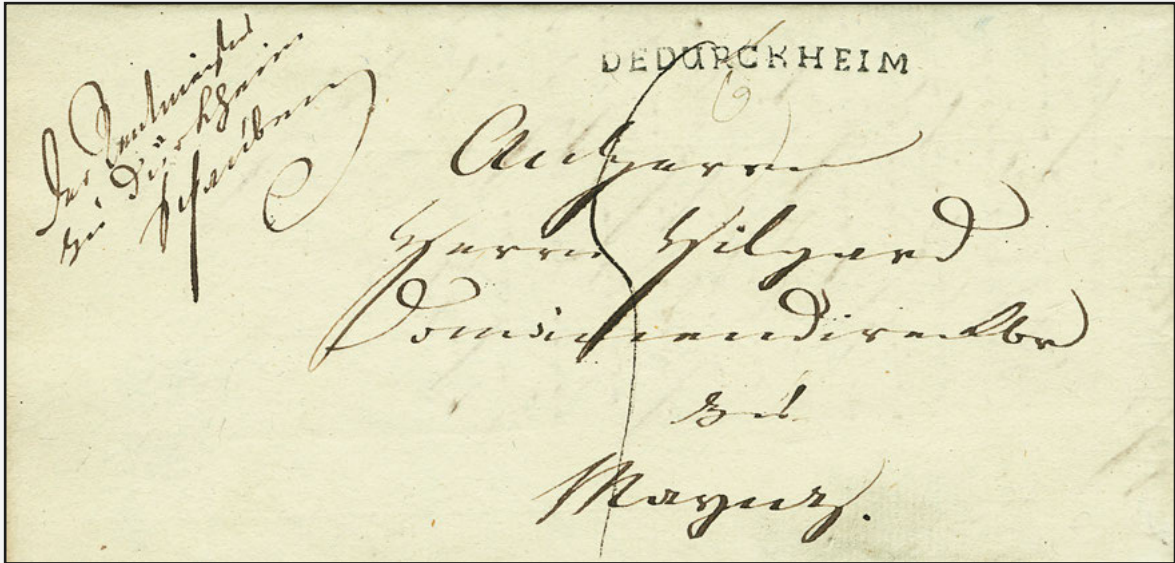 Der Rentmeister
zu Dürkheim
DEDURCKHEIM
An Herrn
Herrn Hilgard
Domainendirecktor
zu
Maynz.